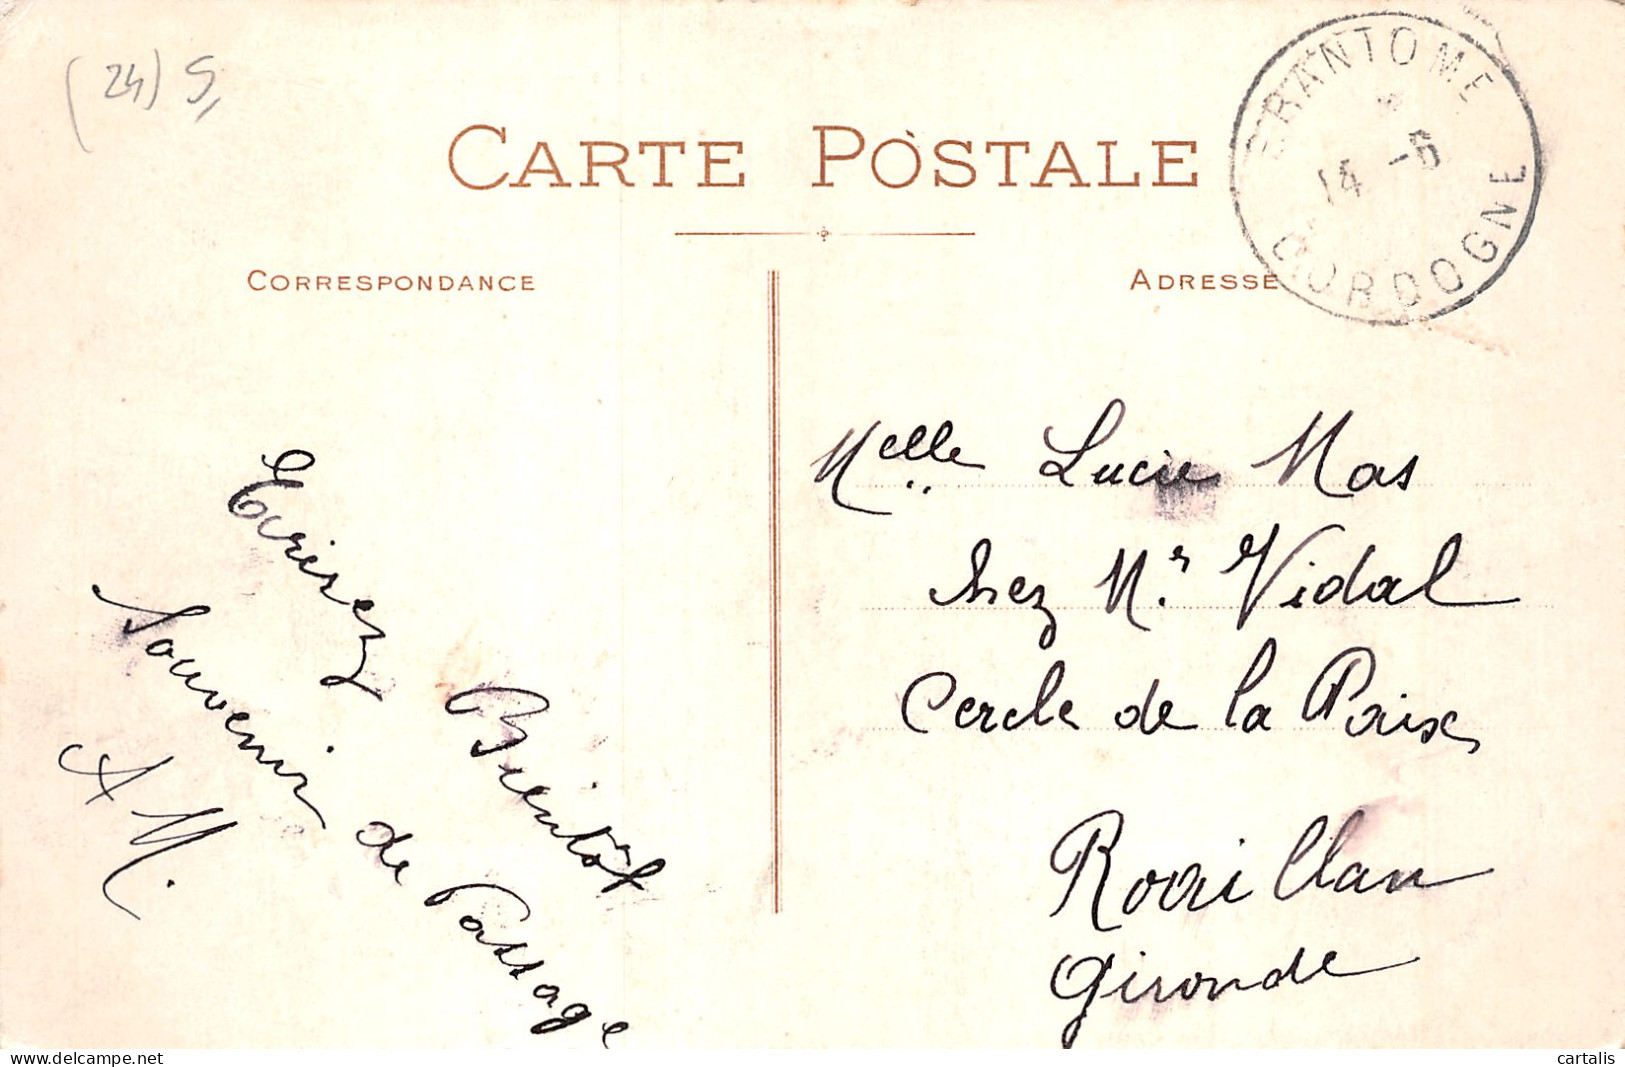 (24) S
CARTE POSTALE
BRANTOME
14 -6
DORDOGNE
CORRESPONDANCE
ADRESSE
Ecrivez Bientôt
Souvenir de Passage
A M.
Melle Lucie Mas
chez Mr. Vidal
Cercle de la Paix
Roaillan
Gironde
cartalis